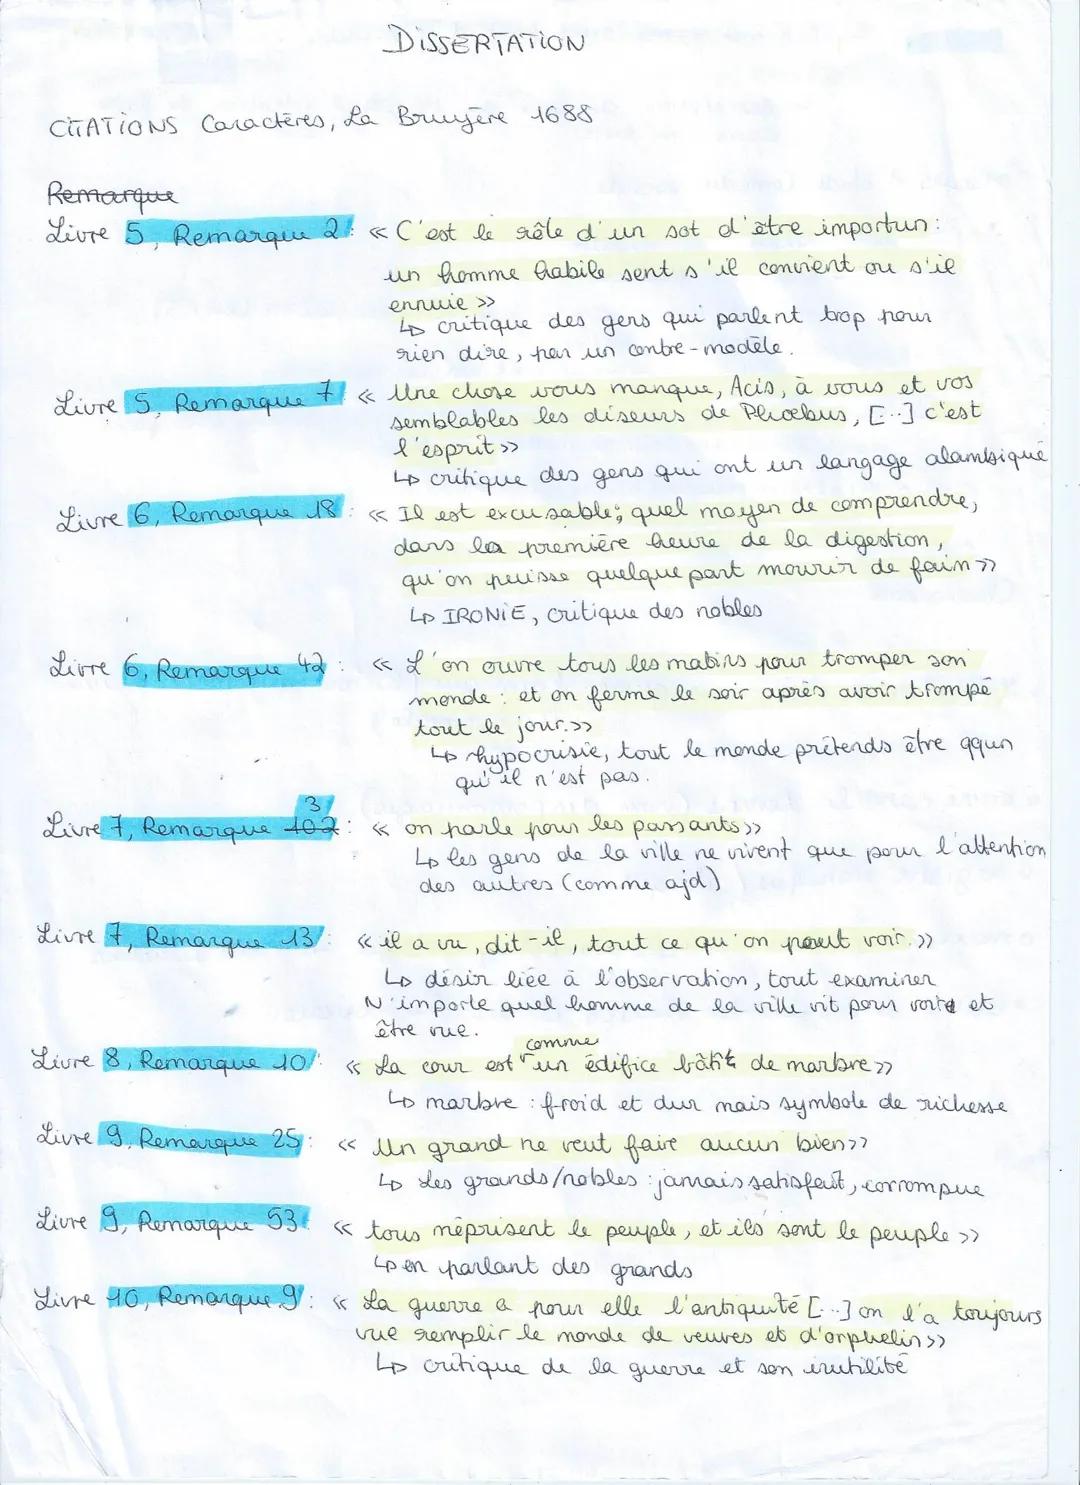 DISSERTATION
CITATIONS Caractères, La Bruyère 1688
Remarque
Livre 5, Remarque 2 : « C'est le rôle d'un sot d'être importun :
un homme habile sent s'il convient ou s'il
ennuie »
↳ critique des gens qui parlent trop pour
rien dire, par un contre-modèle.
Livre 5, Remarque 7 « Une chose vous manque, Acis, à vous et vos
semblables les diseurs de Phoebus, [..] c'est
l'esprit »
↳ critique des gens qui ont un langage alambiqué
Livre 6, Remarque 18 : « Il est excusable; quel moyen de comprendre,
dans la première heure de la digestion,
qu'on puisse quelque part mourir de faim »
↳ IRONIE, critique des nobles
Livre 6, Remarque 42 : « L'on ouvre tous les matins pour tromper son
monde : et on ferme le soir après avoir trompé
tout le jour. »
↳ hypocrisie, tout le monde prétends être qqun
qu'il n'est pas.
3
Livre 7, Remarque 102 : « on parle pour les passants »
↳ les gens de la ville ne vivent que pour l'attention
des autres (comme ajd)
Livre 7, Remarque 13 : « il a vu, dit-il, tout ce qu'on peut voir. »
↳ désir liée à l'observation, tout examiner
N'importe quel homme de la ville vit pour voir et
être vue.
comme
Livre 8, Remarque 10 : « La cour est un édifice bâti de marbre »
↳ marbre : froid et dur mais symbole de richesse
Livre 9, Remarque 25 : « Un grand ne veut faire aucun bien »
↳ Les grands/nobles : jamais satisfait, corrompue
Livre 9, Remarque 53 : « tous méprisent le peuple, et ils sont le peuple »
↳ en parlant des grands
Livre 10, Remarque 9 : « La guerre a pour elle l'antiquité [...] on l'a toujours
vue remplir le monde de veuves et d'orphelin »
↳ critique de la guerre et son inutilité